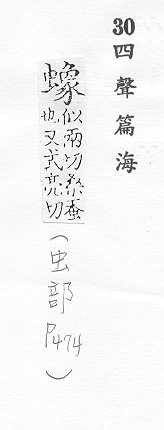 30四聲篇海
蟓
似兩切桑蚕
也又式亮切
(虫部 P474)